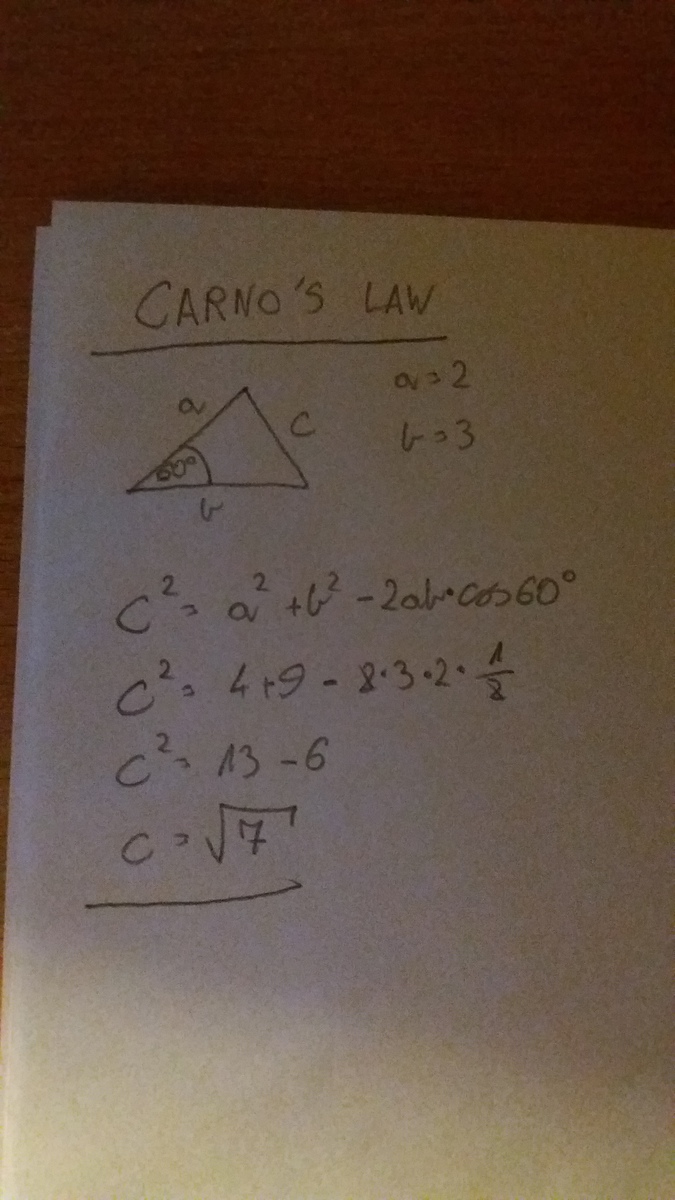 CARNO'S LAW
a = 2
a
60°
c
b = 3
b
C² = a² + b² - 2ab·cos60°
C² = 4+9 - 2·3·2·1/2
C² = 13 - 6
C = √7